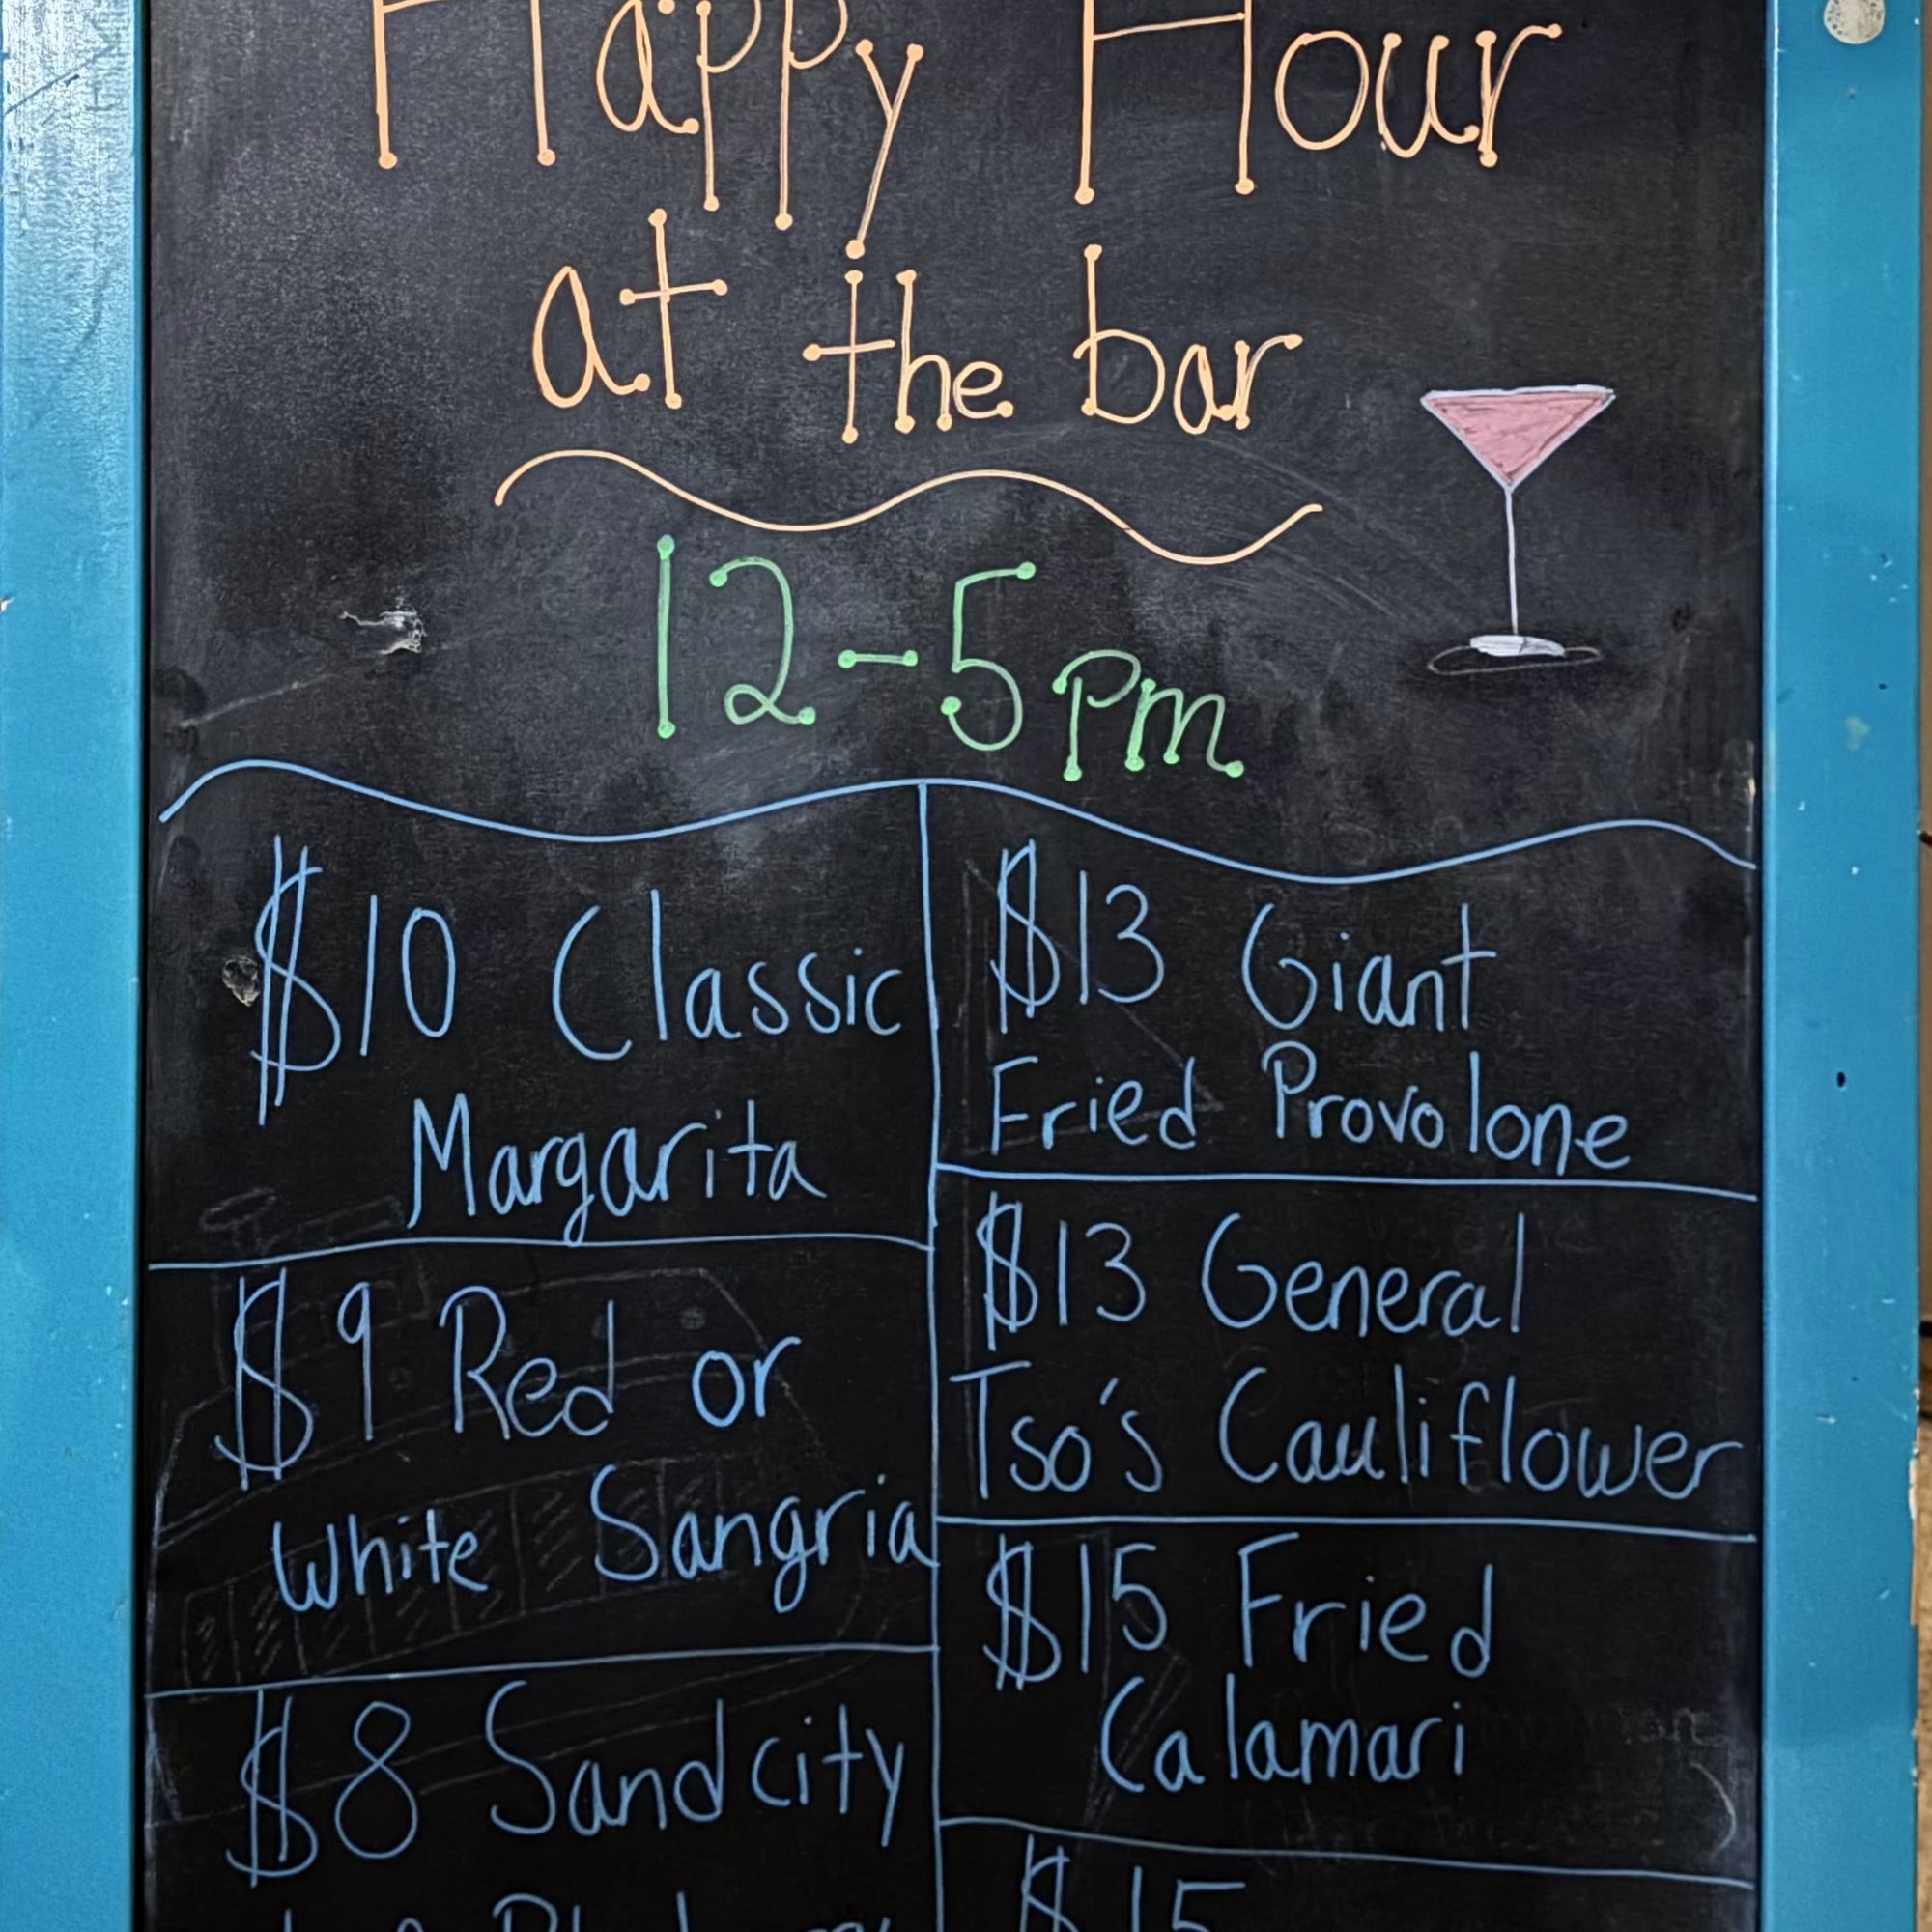 Happy Hour
at the bar
12-5pm
$10 Classic
Margarita
$9 Red or
White Sangria
$8 Sandcity
$13 Giant
Fried Provolone
$13 General
Tso's Cauliflower
$15 Fried
Calamari
$15